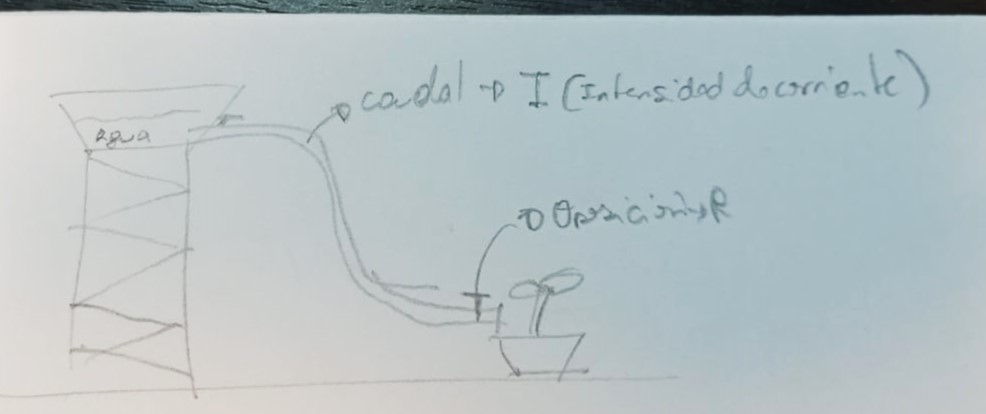 caudal → I (Intensidad de corriente)
agua
Oposición → R